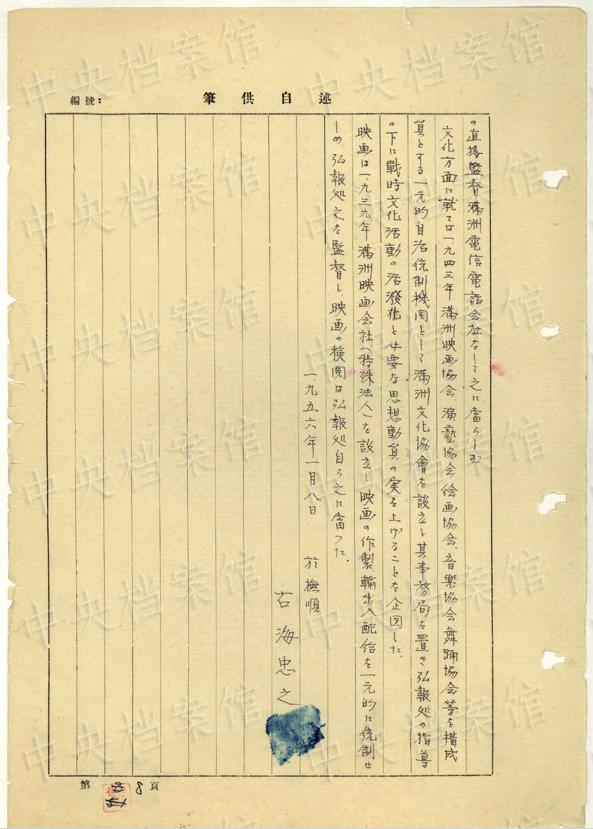 編號:
筆供自述
の直接監督満洲電信電話会社をして之に当らしむ
文化方面に就ては一九四三年満洲映画協会、演藝協会、絵画協会、音楽協会、舞踊協会等を構成
員とする一元的自治統制機関として満洲文化協會を設立し其事務局を置き弘報処の指導
の下に戰時文化活動の活潑化と必要な思想動員の実を上げることを企図した.
映画は一九三九年満洲映画会社(特殊法人)を設立し映画の作製、輸出入配信を一元的に統制せ
しめ、弘報処之を監督し映画の検閲は弘報処自ら之に當つた.
一九五六年一月八日 於 撫順
古海忠之
第 8 頁
中央档案馆